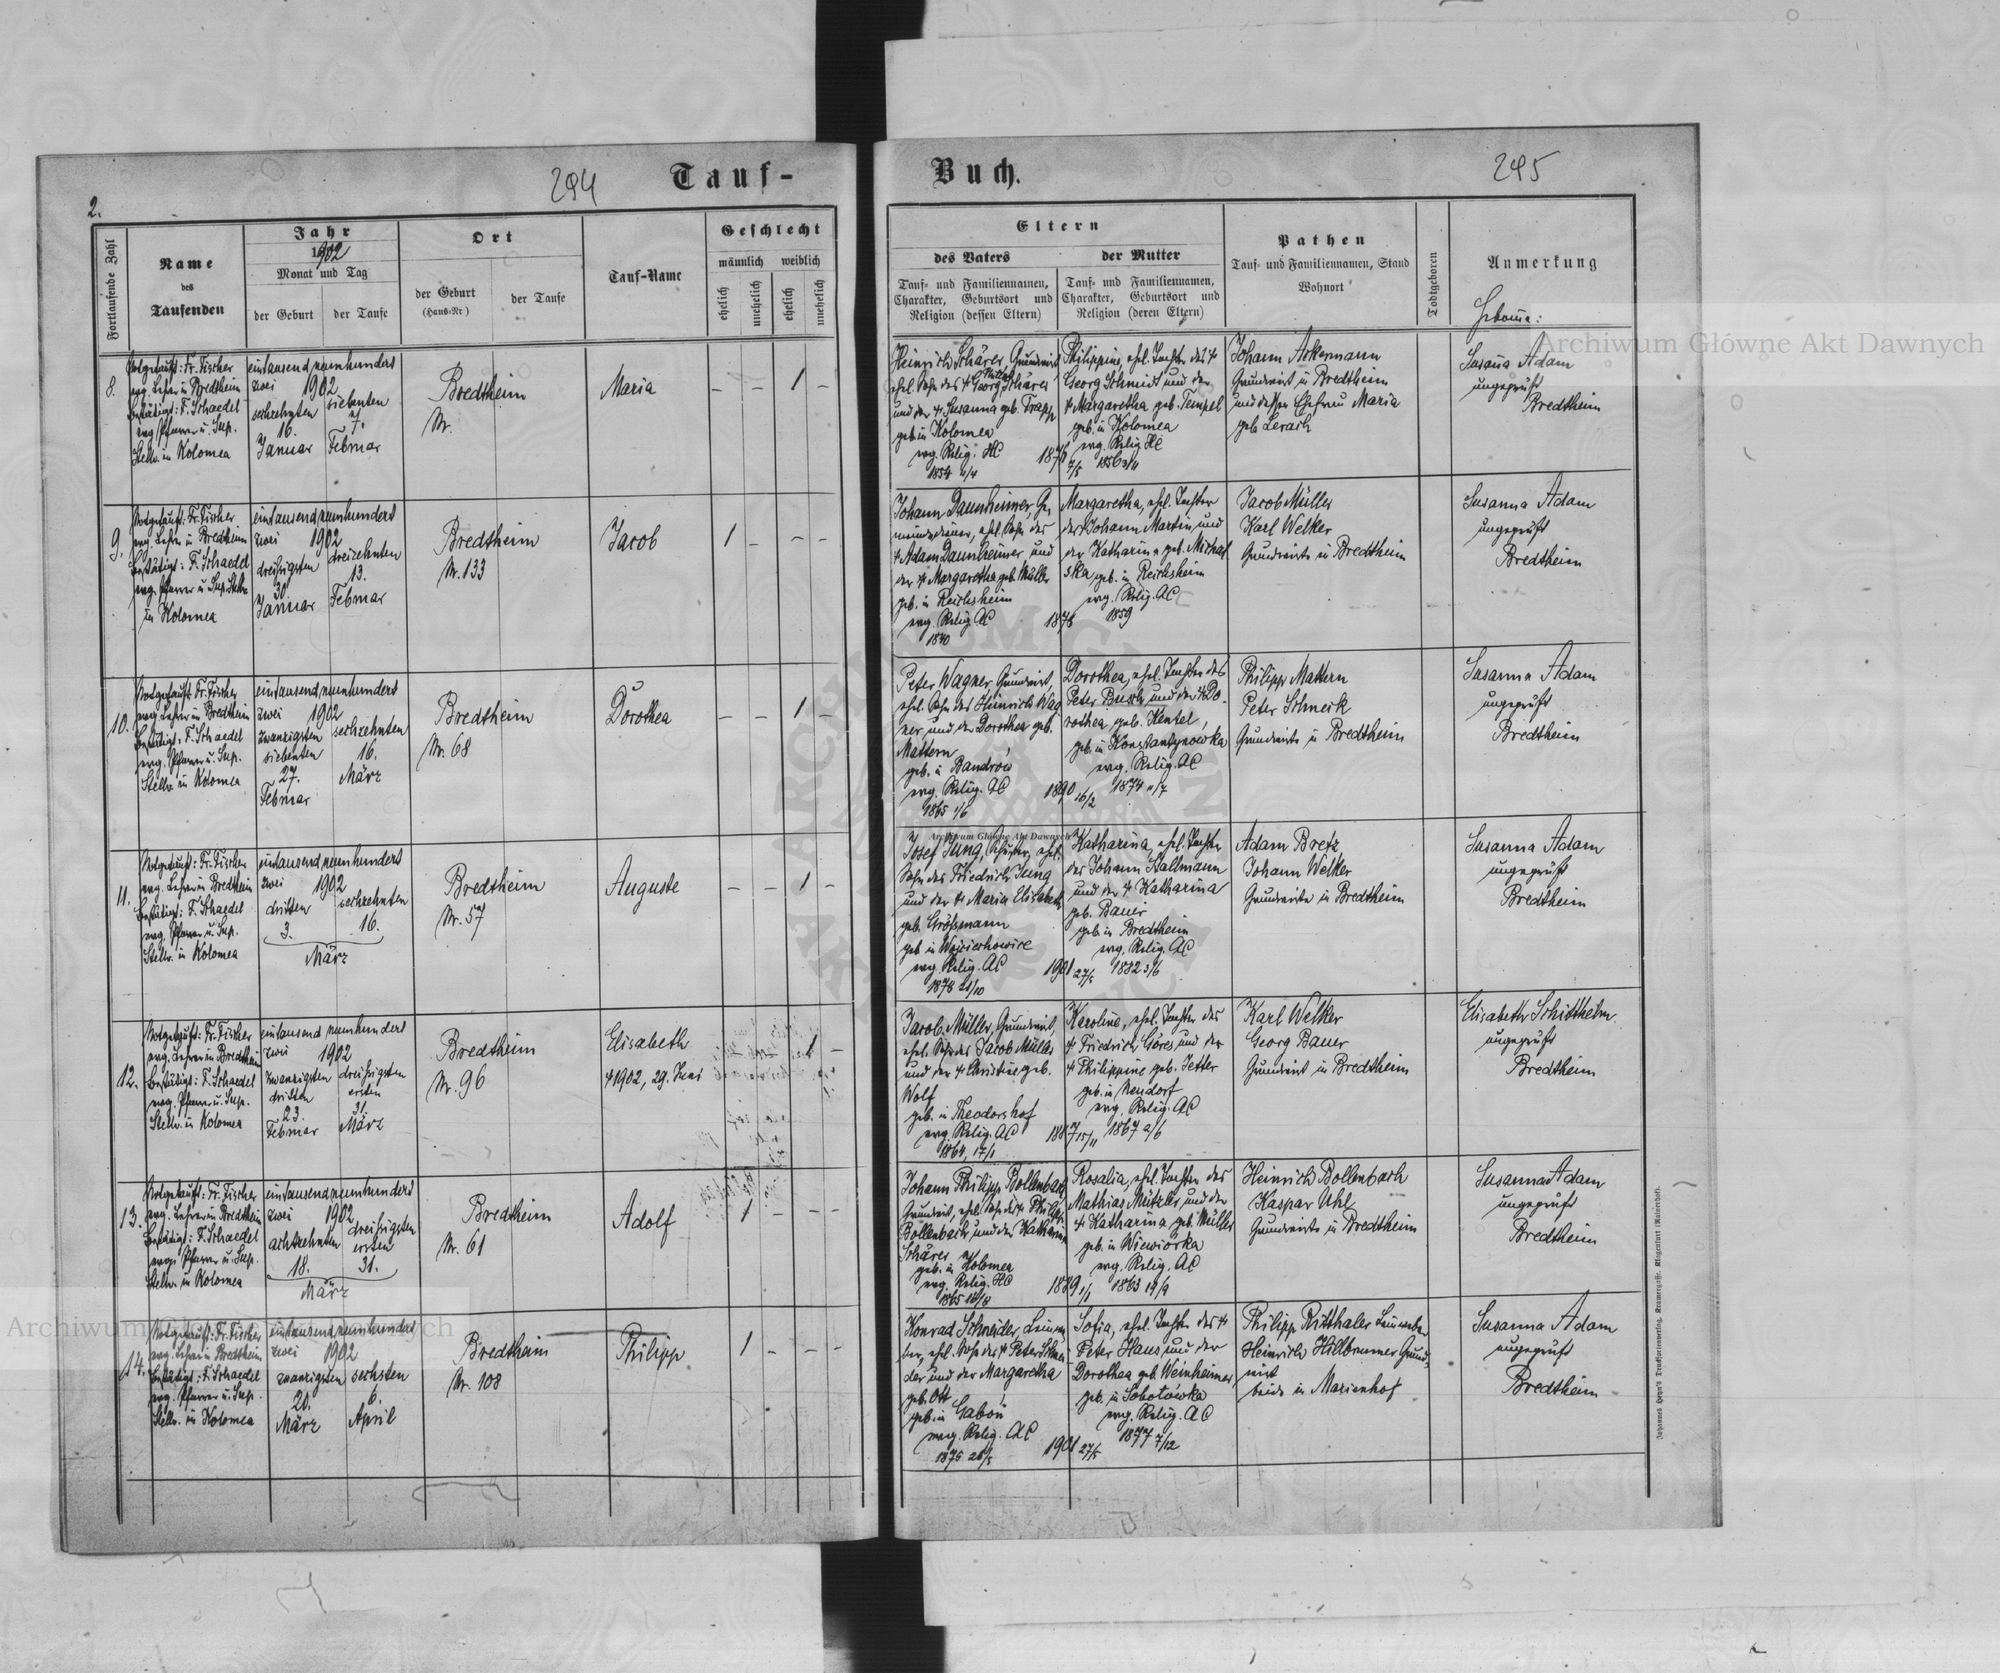 294
Tauf-
Buch.
295
2.
Fortlaufende Zahl
Name
des
Taufenden
Jahr
1902
Monat und Tag
der Geburt
der Taufe
Ort
der Geburt
(Haus-Nr)
der Taufe
Tauf-Name
Geschlecht
männlich
weiblich
ehelich
unehelich
ehelich
unehelich
Eltern
des Vaters
der Mutter
Tauf- und Familiennamen,
Charakter, Geburtsort und
Religion (dessen Eltern)
Tauf- und Familiennamen,
Charakter, Geburtsort und
Religion (deren Eltern)
Pathen
Tauf- und Familiennamen, Stand
Wohnort
Todtgeboren
Anmerkung
8.
Notgetauft: Fr. Fischer
evg. Lehrer in Bredtheim
bestätigt: F. Schaedel
evg. Pfarrer u. Sup.
Stellv. in Kolomea
eintausendneunhundert
zwei 1902
sechzehnten
16.
Januar
siebenten
7.
Februar
Bredtheim
Nr.
Maria
- - 1 -
Heinrich Schärer, Grundwirt,
ehel. Sohn des † Georg Schärer
und der † Susanna geb. Trapp
geb. in Kolomea
evg. Relig. HC
Philippine, ehel. Tochter des †
Georg Schmidt und der
† Margaretha geb. Tempel
geb. in Kolomea
evg. Relig. HC
Johann Ackermann
Grundwirt in Bredtheim
und dessen Ehefrau Maria
Susanna Adam
ungeprüft
Bredtheim
9.
Notgetauft: Fr. Fischer
evg. Lehrer in Bredtheim
bestätigt: F. Schaedel
evg. Pfarrer u. Sup. Stellv.
in Kolomea
eintausendneunhundert
zwei 1902
dreißigsten
30.
Januar
dreizehnten
13.
Februar
Bredtheim
Nr. 133
Jacob
1 - - -
Johann Daunheimer, Ge-
meindediener, ehel. Sohn des
† Adam Daunheimer und
der † Margaretha geb. Müller
geb. in Reichsheim
evg. Relig. AC
1840
1878
Margaretha, ehel. Tochter
des Johann Martin und
der Katharina geb. Michal
ska, geb. in Reichsheim
evg. Relig. AC
1859
Jacob Müller
Karl Welker
Grundwirte in Bredtheim
Susanna Adam
ungeprüft
Bredtheim
10.
Notgetauft: Fr. Fischer
evg. Lehrer in Bredtheim
bestätigt: F. Schaedel
evg. Pfarrer u. Sup.
Stellv. in Kolomea
eintausendneunhundert
zwei 1902
zwanzigsten
siebenten
27.
Februar
sechzehnten
16.
März
Bredtheim
Nr. 68
Dorothea
- - 1 -
Peter Wagner, Grundwirt
ehel. Sohn des Heinrich Wag
ner und der Dorothea geb.
Mattern
geb. in Bandrów
evg. Relig. AC
1865 1/6
1890 16/2
Dorothea, ehel. Tochter des
Peter Busch und der † Do-
rothea, geb. Hentel,
geb. in Konstantynowka
evg. Relig. AC
1874 11/7
Philipp Mattern
Peter Schneik
Grundwirte in Bredtheim
Susanna Adam
ungeprüft
Bredtheim
11.
Notgetauft: Fr. Fischer
evg. Lehrer in Bredtheim
bestätigt: F. Schaedel
evg. Pfarrer u. Sup.
Stellv. in Kolomea
eintausendneunhundert
zwei 1902
dritten
3.
sechzehnten
16.
März
Bredtheim
Nr. 57
Auguste
- - 1 -
Josef Jung, Schuster, ehel.
Sohn des Friedrich Jung
und der † Maria Elisabeth
geb. Größmann
geb. in Wojciechowice
evg. Relig. AC
1878 21/10
1901 27/5
Katharina, ehel. Tochter
des Johann Hallmann
und der † Katharina
geb. Bauer
geb. in Bredtheim
evg. Relig. AC
1882 3/6
Adam Bretz
Johann Welker
Grundwirte in Bredtheim
Susanna Adam
ungeprüft
Bredtheim
12.
Notgetauft: Fr. Fischer
evg. Lehrer in Bredtheim
bestätigt: F. Schaedel
evg. Pfarrer u. Sup.
Stellv. in Kolomea
eintausendneunhundert
zwei 1902
zwanzigsten
dritten
23.
Februar
dreißigsten
ersten
31.
März
Bredtheim
Nr. 96
Elisabeth
† 1902, 29. Juni
1 -
Jacob Müller, Grundwirt,
ehel. Sohn des Jacob Müller
und der † Christine geb.
Wolf
geb. in Theodorshof
evg. Relig. AC
1864, 17/1
1887 15/11
Karoline, ehel. Tochter des
† Friedrich Göres und der
† Philippine geb. Jetter
geb. in Neudorf
evg. Relig. AC
1867 2/6
Karl Welker
Georg Bauer
Grundwirt in Bredtheim
Elisabeth Schittthelm
ungeprüft
Bredtheim
13.
Notgetauft: Fr. Fischer
evg. Lehrer in Bredtheim
bestätigt: F. Schaedel
evg. Pfarrer u. Sup.
Stellv. in Kolomea
eintausendneunhundert
zwei 1902
achtzehnten
18.
dreißigsten
ersten
31.
März
Bredtheim
Nr. 61
Adolf
1 - - -
Johann Philipp Bollenbach
Grundwirt, ehel. Sohn des † Philipp
Bollenbach und der Katharina
Schärer
geb. in Kolomea
evg. Relig. HC
1889 1/1
Rosalia, ehel. Tochter des
Mathias Mützler und der
† Katharina geb. Müller
geb. in Wiewiorka
evg. Relig. AC
1863 14/9
Heinrich Bollenbach
Kaspar Uhl
Grundwirte in Bredtheim
Susanna Adam
ungeprüft
Bredtheim
14.
Notgetauft: Fr. Fischer
evg. Lehrer in Bredtheim
bestätigt: F. Schaedel
evg. Pfarrer u. Sup.
Stellv. in Kolomea
eintausendneunhundert
zwei 1902
zwanzigsten
20.
März
sechsten
6.
April
Bredtheim
Nr. 108
Philipp
1 - - -
Konrad Schneider, Leinwe-
ber, ehel. Sohn des † Peter Schnei-
der und der Margaretha
geb. Ott
geb. in
evg. Relig. AC
1901 27/5
Sofia, ehel. Tochter des †
Peter Haus und der
Dorothea geb. Weinheimer
geb. in Sobotówka
evg. Relig. AC
1877 7/12
Philipp Ritthaler Leinweber
Heinrich Hilbrunner Grund-
wirt
beide in Marienhof
Susanna Adam
ungeprüft
Bredtheim
Archiwum Główne Akt Dawnych
Archiwum Główne Akt Dawnych